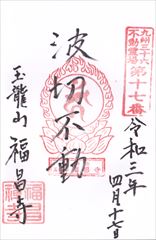 九州三十六
不動霊場
第十七番
令和三年
四月十七日
波切不動
玉龍山 福昌寺